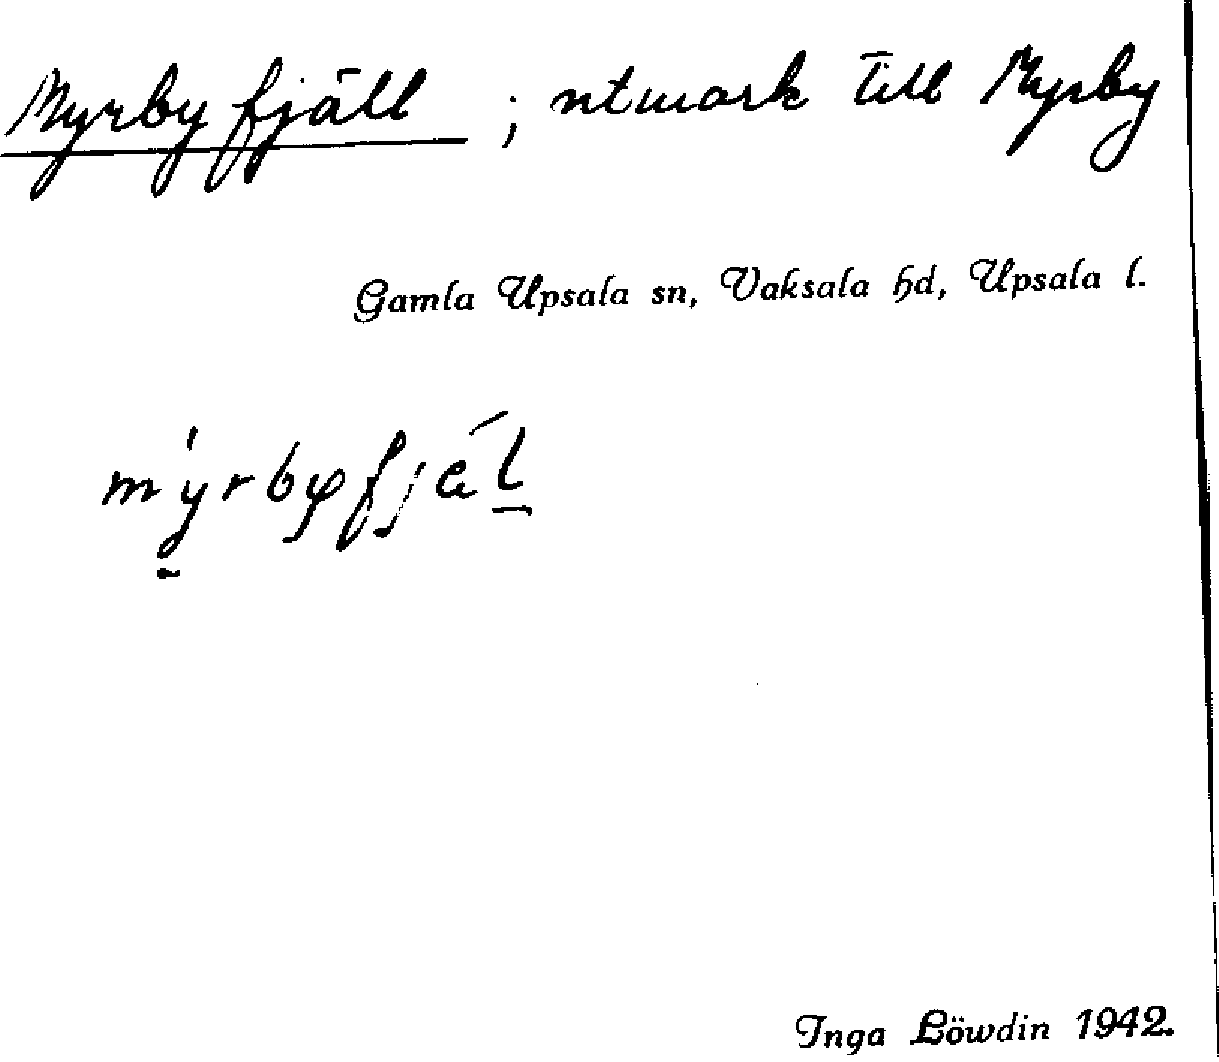 Myrby fjäll ; utmark till Myrby
Gamla Upsala sn, Vaksala hd, Upsala l.
Inga Löwdin 1942.